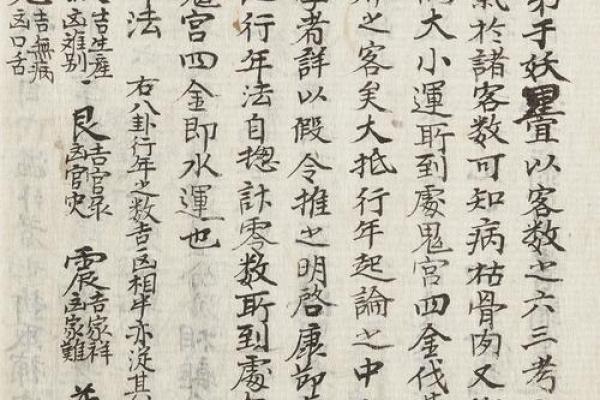 弟于妖星宜以客数之六三考
氣於諸客数可知病枯骨肉又
大小運所到處鬼宮四金伐
所之客矣大抵行年起論之中
學者詳以假令推之明啓康節
行年法自揔計零数所到處
鬼宮四金即水運也
法 右八卦行年之数吉凶相半亦從其
吉生産 凶難别 艮 吉官录 凶官灾 震 吉家祥 凶家難
吉無病 凶口舌